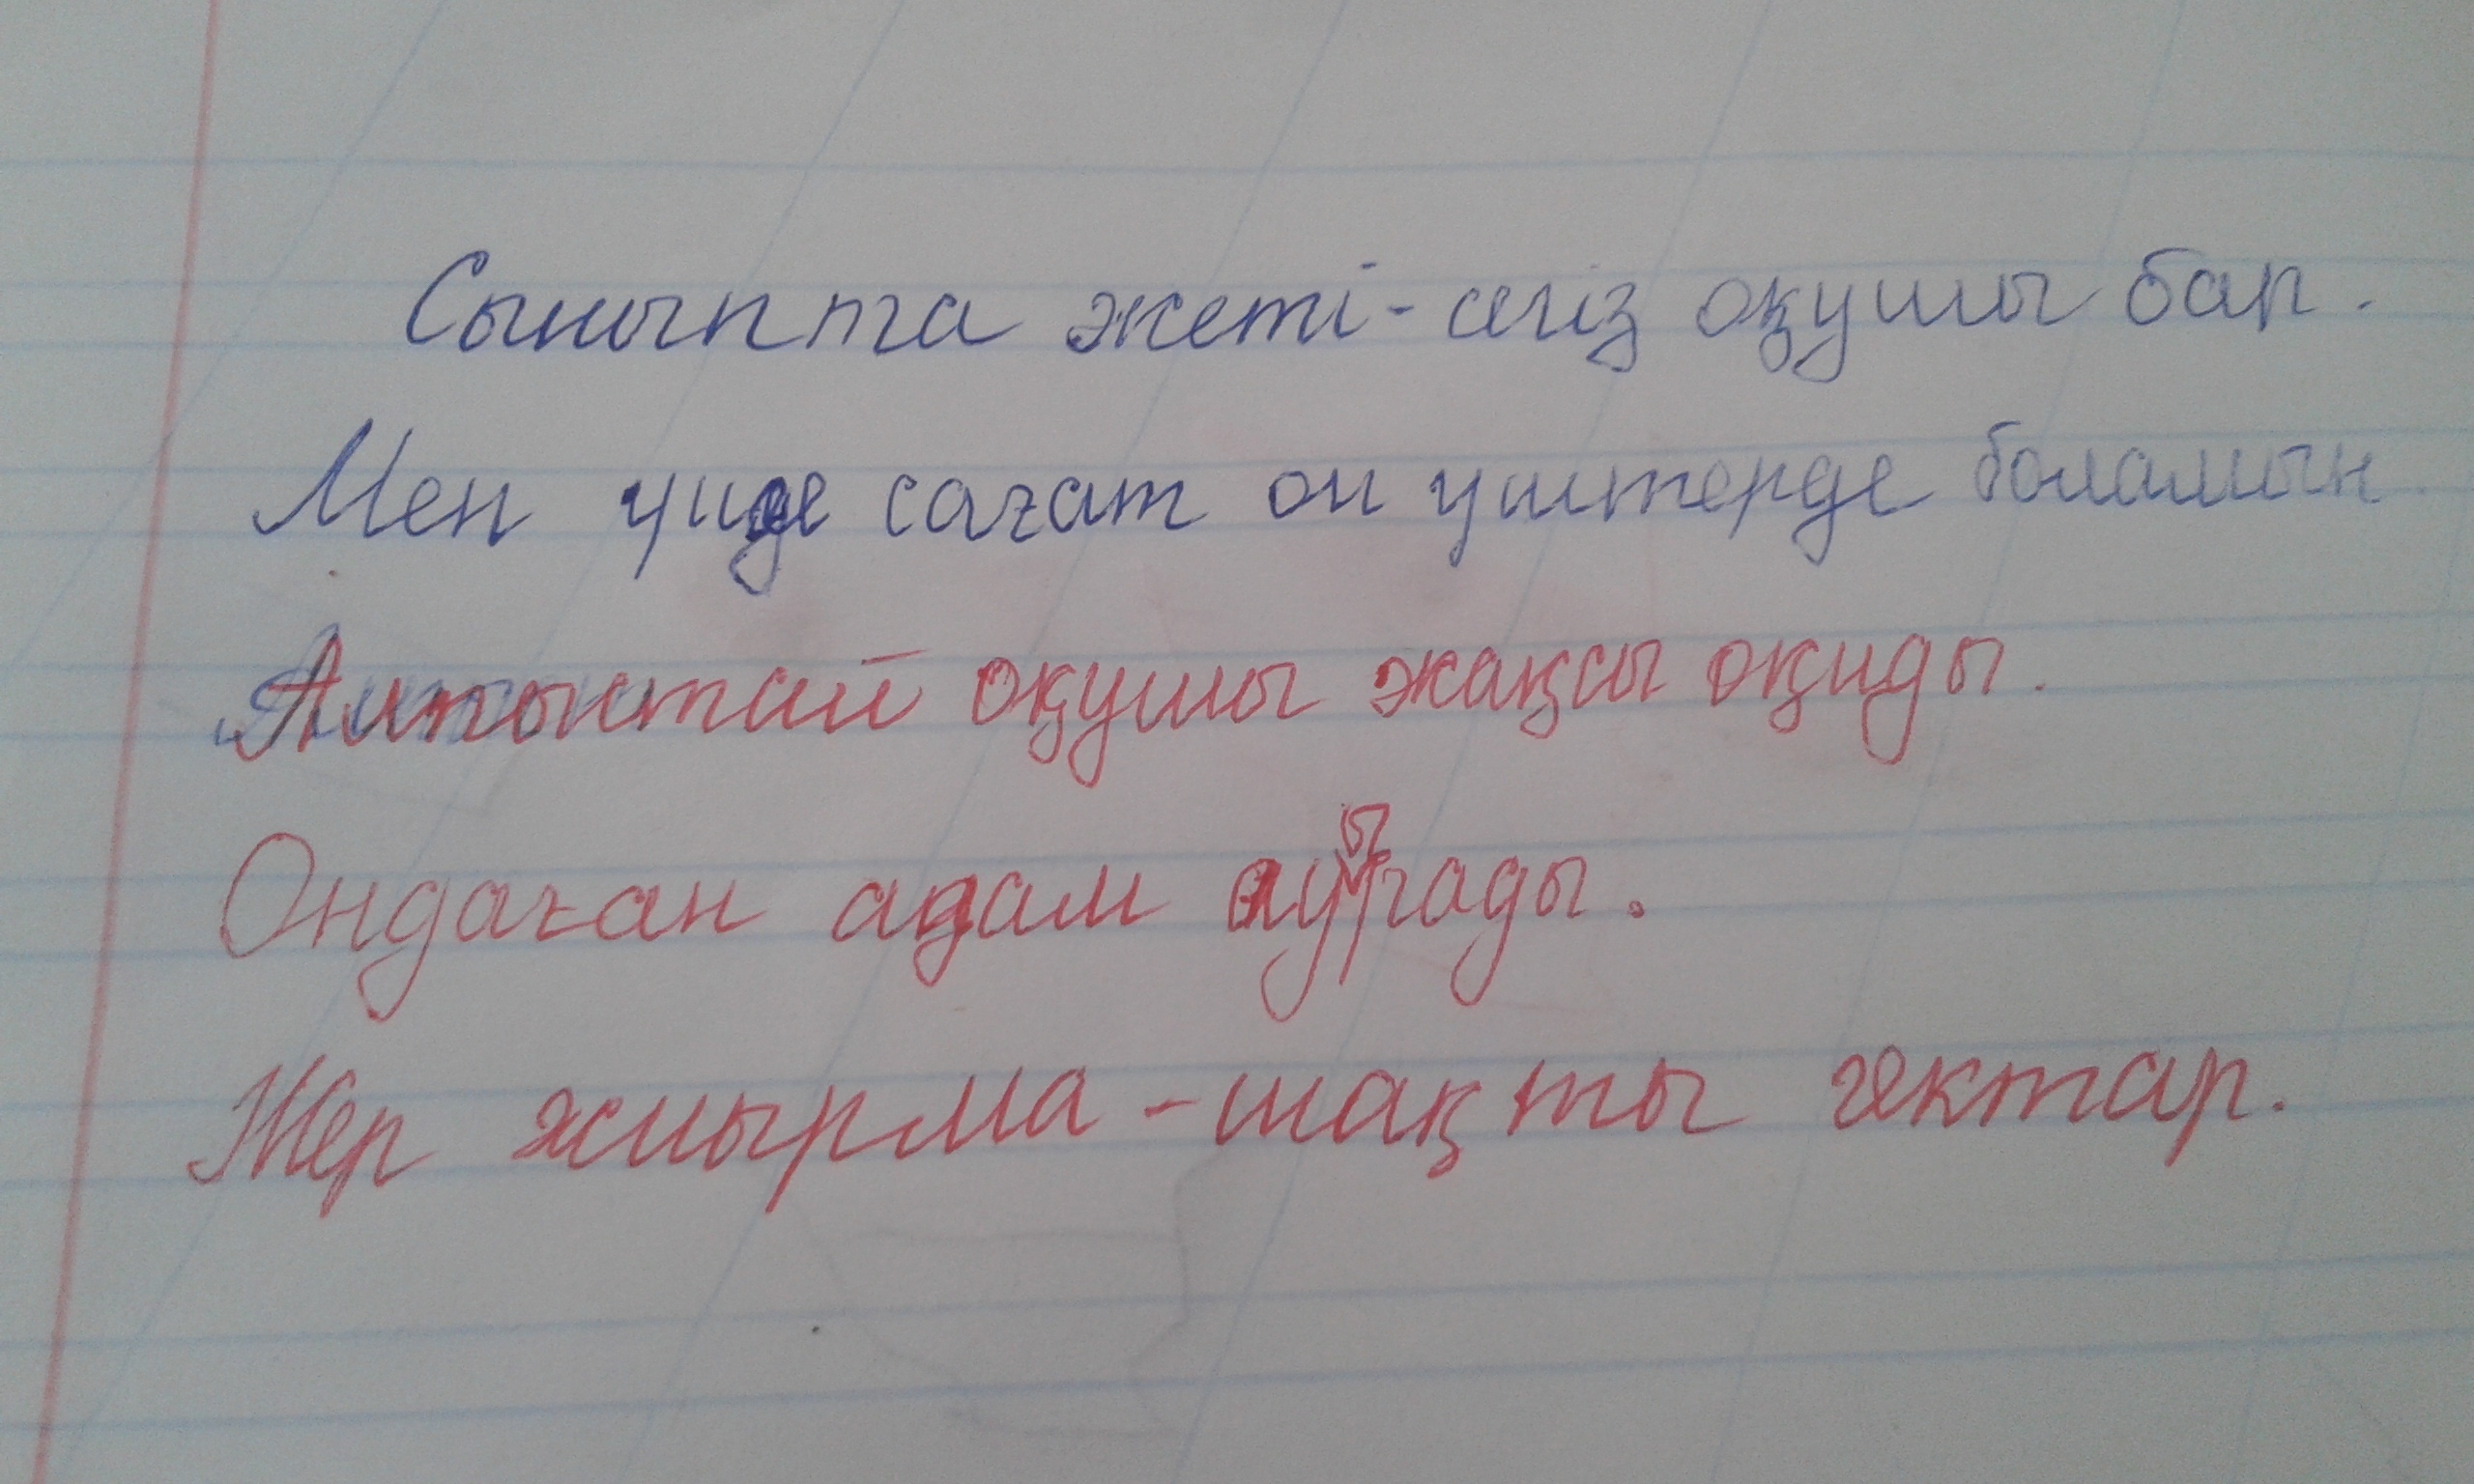 Сыныпта жеті-сегіз оқушы бар.
Мен үйде сағат он үштерде боламын.
Алтынтай оқушы жақсы оқиды.
Ондаған адам ауырады.
Жер жиырма-шақты гектар.